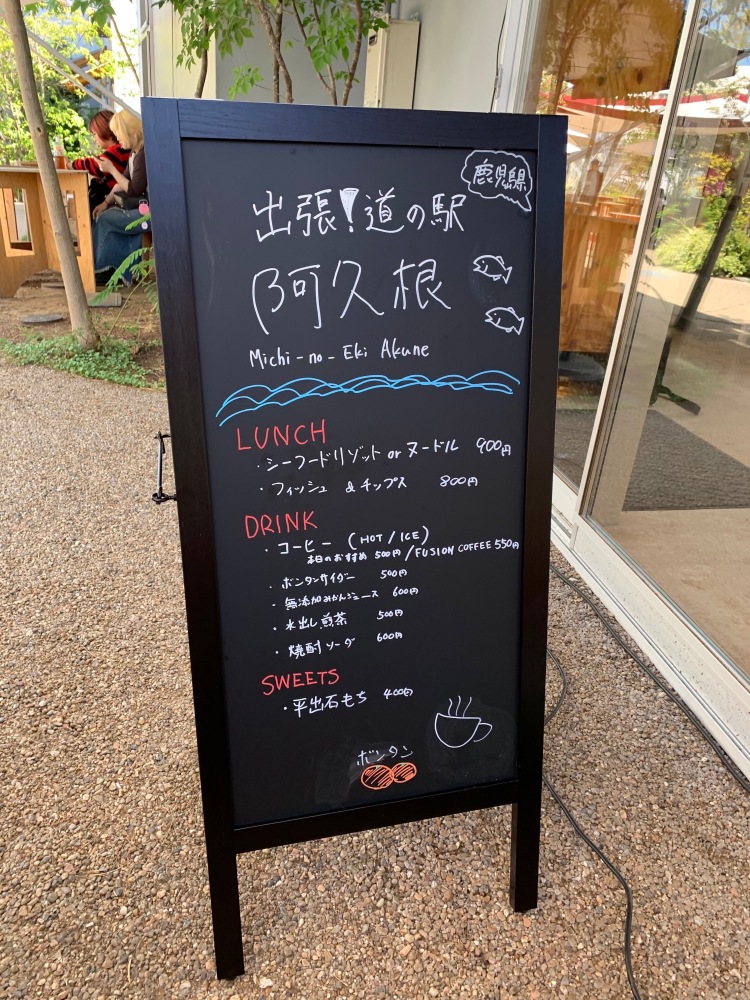 鹿児島県
出張!道の駅
阿久根
Michi-no-Eki Akune
LUNCH
・シーフードリゾット or ヌードル 900円
・フィッシュ &チップス 800円
DRINK
・コーヒー (HOT / ICE)
本日のおすすめ 500円 / FUSION COFFEE 550円
・ボンタンサイダー 500円
・無添加みかんジュース 600円
・水出し煎茶 500円
・焼酎ソーダ 600円
SWEETS
・平出石もち 400円
ボンタン